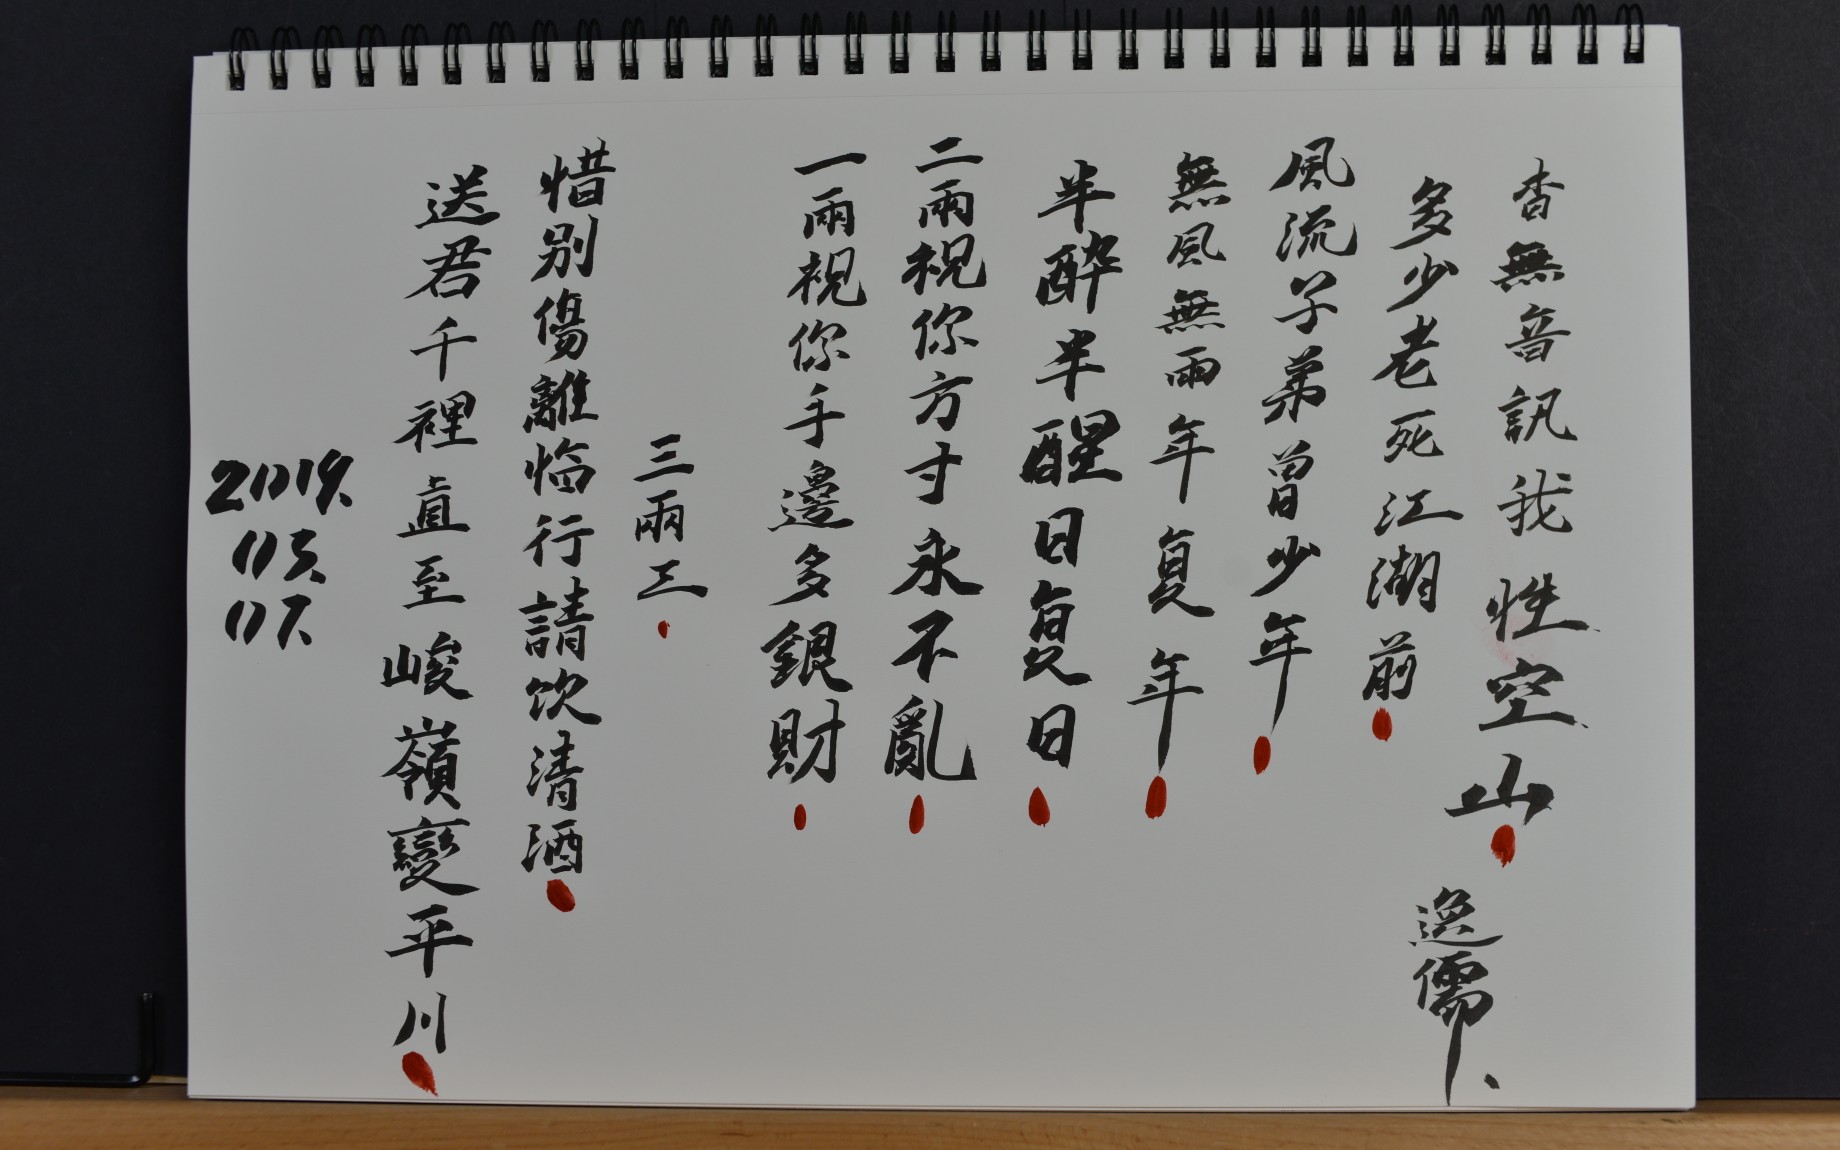 2019.
03.
07.
送君千裡直至峻嶺變平川
惜别傷離临行請饮清酒
三兩三
一兩祝你手邊多銀財
二兩祝你方寸永不亂
半醉半醒日复日
無風無雨年复年
風流子弟曾少年
多少老死江湖前
杳無音訊我性空山
逸儒